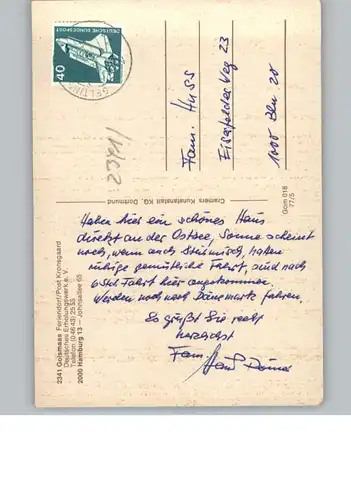 DEUTSCHE BUNDESPOST
40
GELTING
2341/
Fam. Huss
Eisfelder Weg 23
1000 Bln 20
Cramers Kunstanstalt KG, Dortmund
Gom 018
77/5
Haben hier ein schönes Haus
direkt an der Ostsee, Sonne scheint
noch, wenn auch Stürmisch, hatten
ruhige gemütliche Fahrt, sind nach
6 Std Fahrt hier angekommen.
Werden noch nach Dänemark fahren.
So grüßt Sie recht
herzlichst
Fam.
2341 Golsmaas Feriendorf/Post Kronsgaard
Deutsches Erholungswerk e. V.
Telefon (0 46 43) 25 55
2000 Hamburg 13 — Johnsallee 65